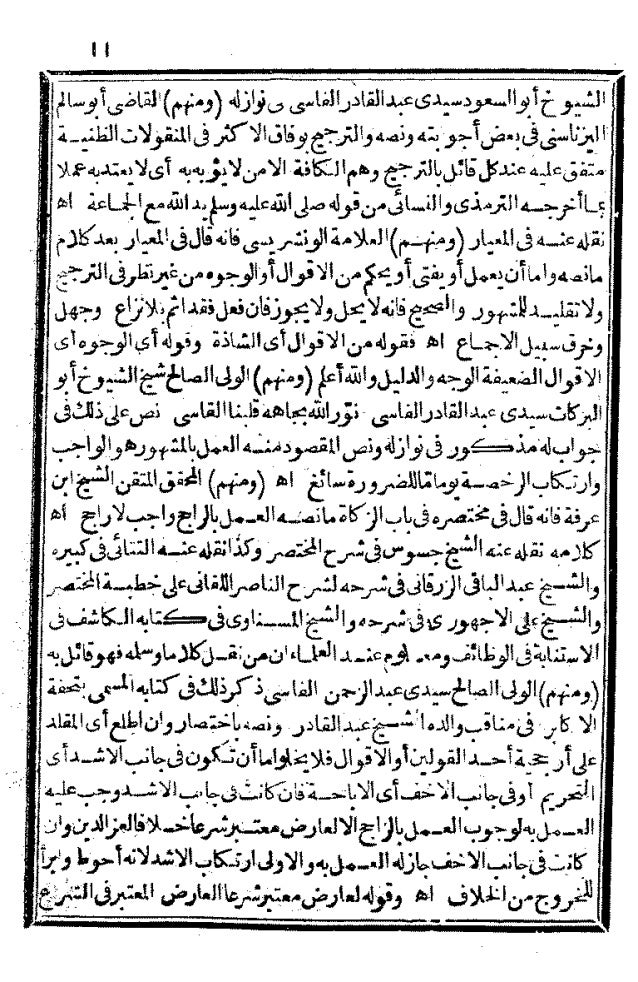 ١١
الشيوخ أبو السعود سيدى عبد القادر الفاسى فى نوازله (ومنهم) القاضى أبو سالم
اليزناسنى فى بعض أجوبته ونصه والترجيح بوفاق الاكثر فى المنقولات الظنيـة
متفق عليه عند كل قائل بالترجيح وهم الكافة الا من لا يؤبه به أى لا يعتد به عملا
بما أخرجـه الترمذى والنسائى من قوله صلى الله عليه وسلم يد الله مع الجماعة اه
نقله عنـه فى المعيار (ومنهـم) العلامة الونشريسى فانه قال فى المعيار بعد كلام
مانصه واما أن يعمل أو يفتى أو يحكم من الاقوال أو الوجوه من غير نظر فى الترجيح
ولا تقليـد للمشهور والصحيح فانه لا يحل ولا يجوز فان فعل فقد اثم بلا نزاع وجهل
وخرق سبيل الاجماع اه فقوله من الاقوال أى الشاذة وقوله أى الوجوه أى
الاقوال الضعيفة الوجه والدليل والله أعلم (ومنهم) الولى الصالح شيخ الشيوخ أبو
البركات سيدى عبد القادر الفاسى نوّر الله بجاهه قلبنا القاسى نص على ذلك فى
جواب له مذكور فى نوازله ونص المقصود منـه العمل بالمشهور هو الواجب
وارتكاب الرخصة يوما ما للضرورة سائغ اه (ومنهم) المحقق المتقن الشيخ ابن
عرفة فانه قال فى مختصره فى باب الزكاة مانصـه العـمل بالراجح واجب لا راجح اه
كلامه نقله عنه الشيخ جسوس فى شرح المختصر وكذا نقله عنـه التتائى فى كبيره
والشـيخ عبد الباقى الزرقانى فى شرحه لشرح الناصر اللقانى على خطبـة المختصر
والشـيخ على الاجهورى فى شرحه والشيخ المسـناوى فى كتابه الكاشف فى
الاستنابة فى الوظائف ومعـلوم عنـد العلماء ان من نقـل كلاما وسلمه فهو قائل به
(ومنهم) الولى الصالح سيدى عبد الرحمن الفاسى ذكر ذلك فى كتابه المسمى بتحفة
الاكابر فى مناقب والده الشـيخ عبد القادر ونصه باختصار وان اطلع أى المقلد
على أرجحية أحـد القولين أو الاقوال فلا يخلو اما أن تكون فى جانب الاشد أى
التحريم أو فى جانب الاخف أى الاباحـة فان كانت فى جانب الاشـد وجب عليه
العـمل به لوجوب العـمل بالراجح الا لعارض معتـبر شرعا خـلافا لعز الدين وان
كانت فى جانب الاخف جاز له العـمل به والاولى ارتكاب الاشد لانه أحوط وابرأ
للخروج من الخلاف اه وقوله لعارض معتبر شرعا العارض المعتبر فى الشرع